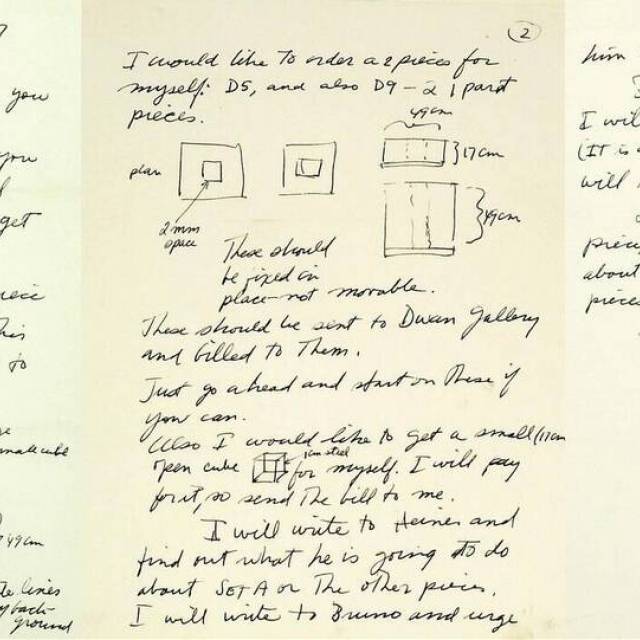 you
you
get
piece
This
to
small cube
49cm
lines
back-
ground
2
I would like to order a 2 pieces for
myself: D5, and also D9 - 2 1 part
pieces.
49cm
plan
17cm
2mm
space
49cm
These should
be fixed in
place-not movable.
These should be sent to Dwan Gallery
and billed to Them.
Just go ahead and start on These if
you can.
Also I would like to get a small (17cm
open cube 1cm steel for myself. I will pay
for it, so send The bill to me.
I will write to Heiner and
find out what he is going to do
about Set A or The other pieces.
I will write to Bruno and urge
him
I wil
(IT is
will
piec
about
pieces